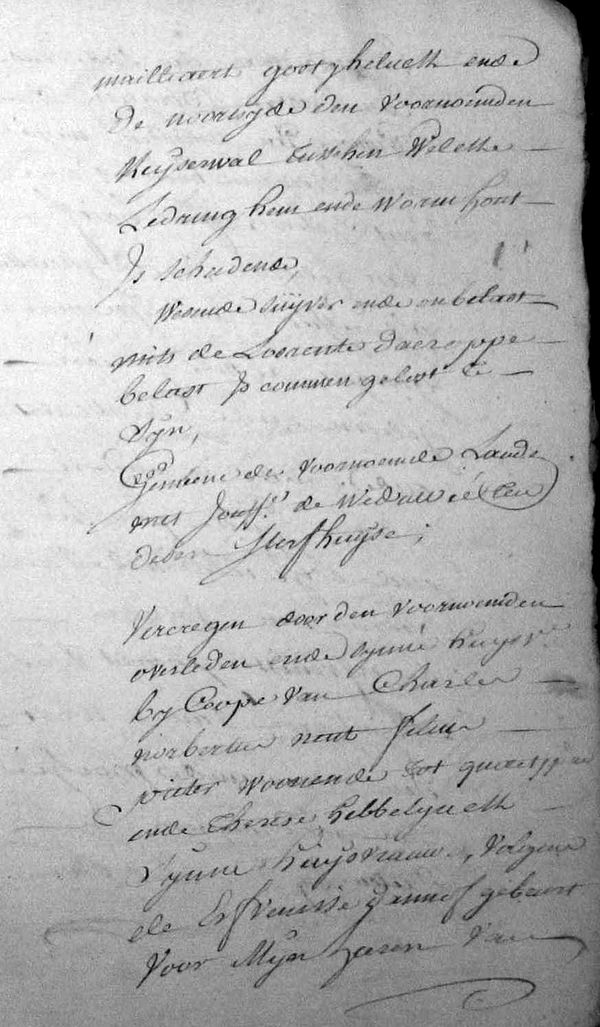 mailliaert goetghelueck ende
de noortzyde den voornoemden
Keyserwal tusschen
Ledringhem ende wormhout
Is schedende,
weende suijver ende onbelast
mits de Losrente daeroppe
belast Is commen gelost te
Syn,
de voornoemde Lande
met Jouff.e de weduwe
deser sterfhuyse;
vercregen door den voornoemden
overleden ende synne huysv.e
by Coope van Charles
norbertus filius
pieter woonende tot
ende Therese hebbelynck
Synne huysvrauw, volgens
de Erfvenisse gebeurt
voor Myn heeren van